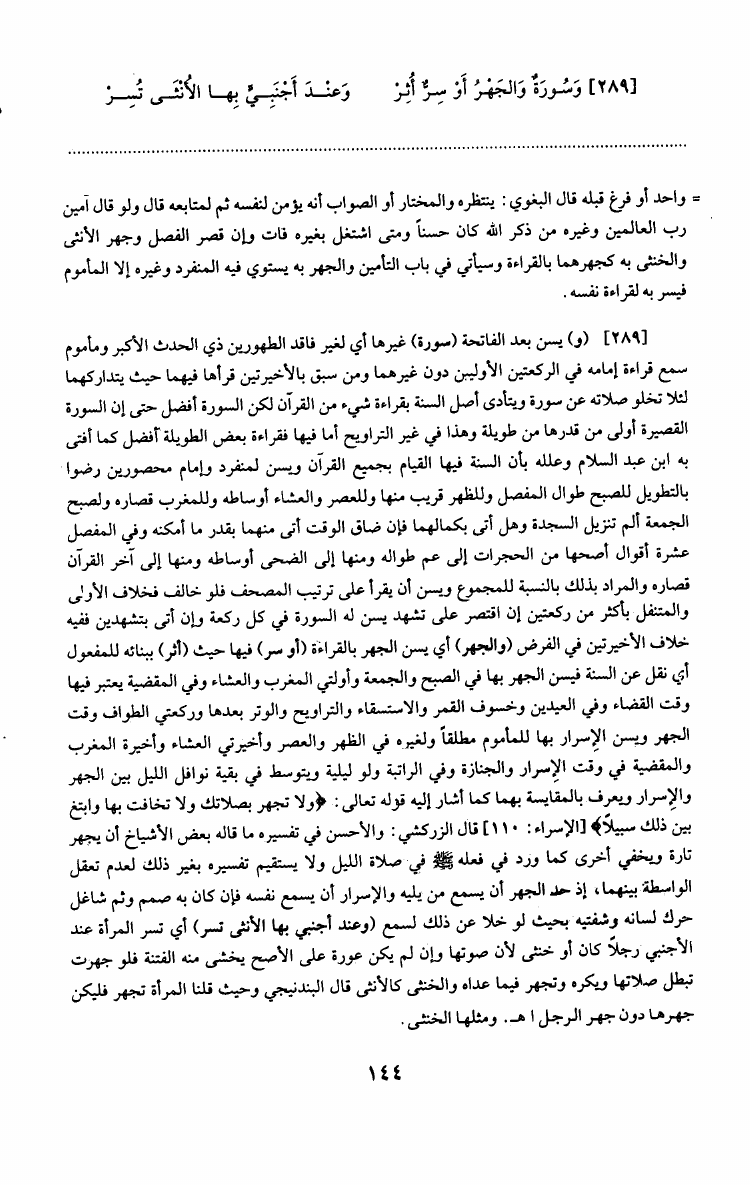 [٢٨٩] وَسُورَةٌ وَالجَهْرُ أَوْ سِرٌّ أُثِرْ وَعنْـدَ أَجْنَبِـيٍّ بِهـا الأُنْثَـى تُسِـرْ
= واحد أو فرغ قبله قال البغوي: ينتظره والمختار أو الصواب أنه يؤمن لنفسه ثم لمتابعه قال ولو قال آمين
رب العالمين وغيره من ذكر الله كان حسناً ومتى اشتغل بغيره فات وإن قصر الفصل وجهر الأنثى
والخنثى به كجهرهما بالقراءة وسيأتي في باب التأمين والجهر به يستوي فيه المنفرد وغيره إلا المأموم
فيسر به لقراءة نفسه.
[٢٨٩] (و) يسن بعد الفاتحة (سورة) غيرها أي لغير فاقد الطهورين ذي الحدث الأكبر ومأموم
سمع قراءة إمامه في الركعتين الأوليين دون غيرهما ومن سبق بالأخيرتين قرأها فيهما حيث يتداركهما
لئلا تخلو صلاته عن سورة ويتأدى أصل السنة بقراءة شيء من القرآن لكن السورة أفضل حتى إن السورة
القصيرة أولى من قدرها من طويلة وهذا في غير التراويح أما فيها فقراءة بعض الطويلة أفضل كما أفتى
به ابن عبد السلام وعلله بأن السنة فيها القيام بجميع القرآن ويسن لمنفرد وإمام محصورين رضوا
بالتطويل للصبح طوال المفصل وللظهر قريب منها وللعصر والعشاء أوساطه وللمغرب قصاره ولصبح
الجمعة ألم تنزيل السجدة وهل أتى بكمالهما فإن ضاق الوقت أتى منهما بقدر ما أمكنه وفي المفصل
عشرة أقوال أصحها من الحجرات إلى عم طواله ومنها إلى الضحى أوساطه ومنها إلى آخر القرآن
قصاره والمراد بذلك بالنسبة للمجموع ويسن أن يقرأ على ترتيب المصحف فلو خالف فخلاف الأولى
والمتنفل بأكثر من ركعتين إن اقتصر على تشهد يسن له السورة في كل ركعة وإن أتى بتشهدين ففيه
خلاف الأخيرتين في الفرض (والجهر) أي يسن الجهر بالقراءة (أو سر) فيها حيث (أثر) ببنائه للمفعول
أي نقل عن السنة فيسن الجهر بها في الصبح والجمعة وأولتي المغرب والعشاء وفي المقضية يعتبر فيها
وقت القضاء وفي العيدين وخسوف القمر والاستسقاء والتراويح والوتر بعدها وركعتي الطواف وقت
الجهر ويسن الإسرار بها للمأموم مطلقاً ولغيره في الظهر والعصر وأخيرتي العشاء وأخيرة المغرب
والمقضية في وقت الإسرار والجنازة وفي الراتبة ولو ليلية ويتوسط في بقية نوافل الليل بين الجهر
والإسرار ويعرف بالمقايسة بهما كما أشار إليه قوله تعالى: ﴿ولا تجهر بصلاتك ولا تخافت بها وابتغ
بين ذلك سبيلاً﴾ [الإسراء: ١١٠] قال الزركشي: والأحسن في تفسيره ما قاله بعض الأشياخ أن يجهر
تارة ويخفي أخرى كما ورد في فعله ﷺ في صلاة الليل ولا يستقيم تفسيره بغير ذلك لعدم تعقل
الواسطة بينهما، إذ حد الجهر أن يسمع من يليه والإسرار أن يسمع نفسه فإن كان به صمم وثم شاغل
حرك لسانه وشفتيه بحيث لو خلا عن ذلك لسمع (وعند أجنبي بها الأنثى تسر) أي تسر المرأة عند
الأجنبي رجلاً كان أو خنثى لأن صوتها وإن لم يكن عورة على الأصح يخشى منه الفتنة فلو جهرت
تبطل صلاتها ويكره وتجهر فيما عداه والخنثى كالأنثى قال البندنيجي وحيث قلنا المرأة تجهر فليكن
جهرها دون جهر الرجل ا هـ. ومثلها الخنثى.
١٤٤